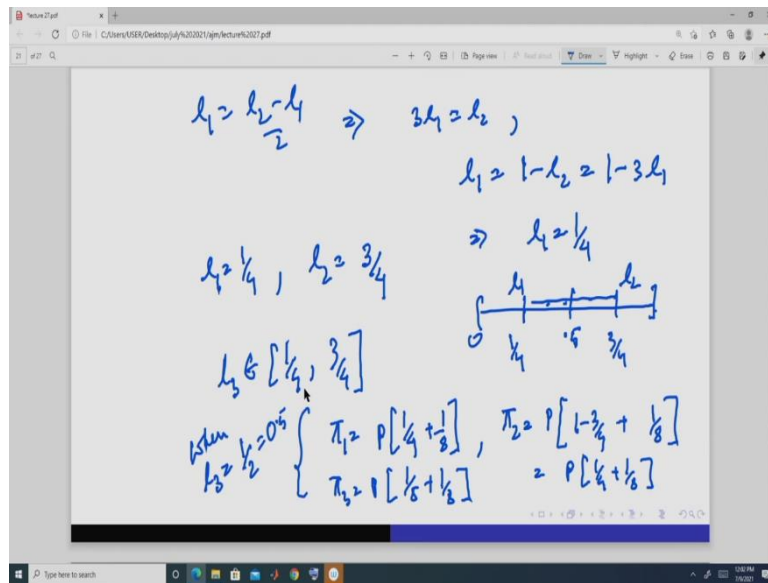 lecture 27.pdf
File | C:/Users/USER/Desktop/july%202021/ajm/lecture%2027.pdf
21 of 27 Page view Read aloud Draw Highlight Erase
l₁ = (l₂ - l₁)/2 ⇒ 3l₁ = l₂ ,
l₁ = 1 - l₂ = 1 - 3l₁
⇒ l₁ = 1/4
l₁ = 1/4 , l₂ = 3/4
l₁ l₂
0 1/4 .5 3/4
l₃ ∈ [1/4, 3/4]
when l₃ = 1/2 = 0.5 { π₁ = P[1/4 + 1/8] , π₂ = P[1 - 3/4 + 1/8]
π₃ = P[1/8 + 1/8] = P[1/4 + 1/8]
Type here to search 12:02 PM
7/9/2021